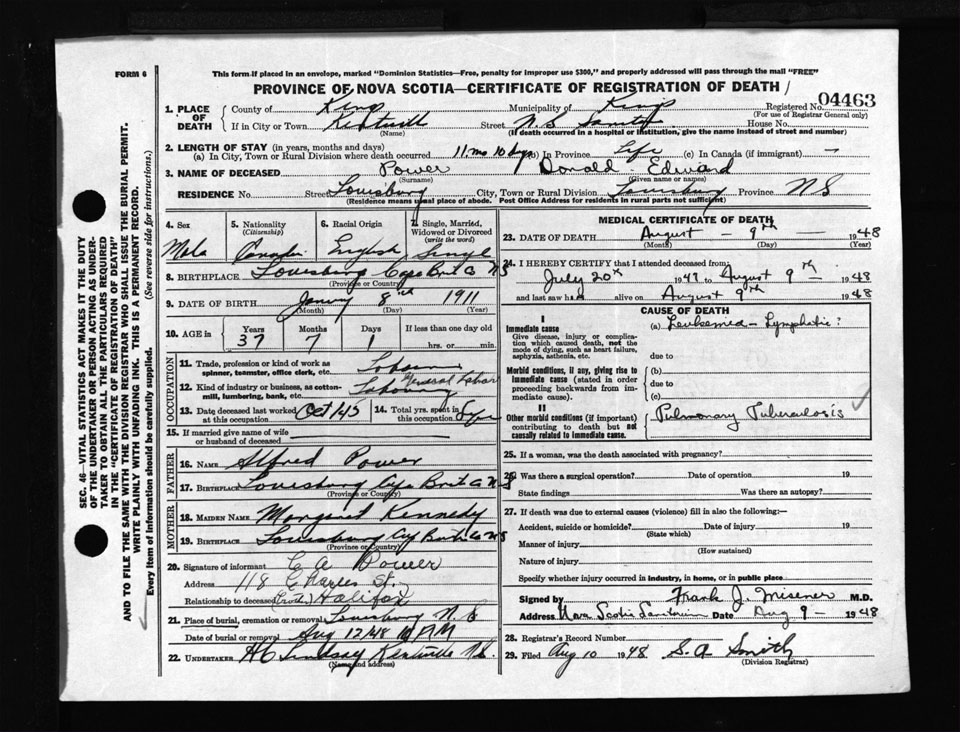 FORM 6
This form if placed in an envelope, marked "Dominion Statistics—Free, penalty for improper use $300," and properly addressed will pass through the mail "FREE"
PROVINCE OF NOVA SCOTIA—CERTIFICATE OF REGISTRATION OF DEATH
1. PLACE OF DEATH County of Kings Municipality of Kings Registered No. 04463
(For use of Registrar General only)
If in City or Town Kentville Street N.S. House No.
(Name) (If death occurred in a hospital or institution, give the name instead of street and number)
2. LENGTH OF STAY (in years, months and days)
(a) In City, Town or Rural Division where death occurred 11 mo 10 days (b) In Province Life (c) In Canada (if immigrant) —
3. NAME OF DECEASED Power Donald Edward
(Surname) (Given name or names)
RESIDENCE No. Street Louisburg City, Town or Rural Division Louisburg Province NS
(Residence means usual place of abode. Post Office Address for residents in rural parts not sufficient)
4. Sex 5. Nationality (Citizenship) 6. Racial Origin 7. Single, Married, Widowed or Divorced (write the word)
Male English Single
8. BIRTHPLACE Louisburg Cape Bret Co NS
(Province or Country)
9. DATE OF BIRTH 8th 1911
(Month) (Day) (Year)
10. AGE in Years Months Days If less than one day old
37 7 1 hrs. or min.
OCCUPATION
11. Trade, profession or kind of work as spinner, teamster, office clerk, etc.
12. Kind of industry or business, as cotton-mill, lumbering, bank, etc. General Labor
13. Date deceased last worked at this occupation Oct/45 14. Total yrs. spent in this occupation
15. If married give name of wife or husband of deceased
FATHER
16. NAME Alfred Power
17. BIRTHPLACE Louisburg Cape Bret Co NS
(Province or Country)
MOTHER
18. MAIDEN NAME Margaret Kennedy
19. BIRTHPLACE Louisburg Cape Bret Co NS
(Province or Country)
20. Signature of informant C A Power
Address 118 Charles St.
Relationship to deceased (Brother) Halifax
21. Place of burial, cremation or removal Louisburg N.S
Date of burial or removal Aug 12/48 PM
22. UNDERTAKER HC Lindsay Kentville NS.
(Name and address)
MEDICAL CERTIFICATE OF DEATH
23. DATE OF DEATH August — 9th — 1948
(Month) (Day) (Year)
24. I HEREBY CERTIFY that I attended deceased from:
July 20th 1947 to August 9th 1948
and last saw him alive on August 9th 1948
CAUSE OF DEATH
I
Immediate cause
Give disease, injury or complication which caused death, not the mode of dying, such as heart failure, asphyxia, asthenia, etc.
(a) Leukaemia — Lymphatic?
due to
Morbid conditions, if any, giving rise to immediate cause (stated in order proceeding backwards from immediate).
(b)
due to
(c)
II
Other morbid conditions (if important) contributing to death but not causally related to immediate cause.
Pulmonary Tuberculosis
25. If a woman, was the death associated with pregnancy?
26. Was there a surgical operation? Date of operation 19
State findings Was there an autopsy?
27. If death was due to external causes (violence) fill in also the following:—
Accident, suicide or homicide? Date of injury 19
(State which)
Manner of injury
(How sustained)
Nature of injury
Specify whether injury occurred in industry, in home, or in public place
Signed by Frank J. Misener M.D.
Address Nova Scotia Sanatorium Date Aug 9 – 1948
28. Registrar's Record Number
29. Filed Aug 10 1948 S. A Smith
(Division Registrar)
SEC. 46—VITAL STATISTICS ACT MAKES IT THE DUTY
OF THE UNDERTAKER OR PERSON ACTING AS UNDER-
TAKER TO OBTAIN ALL THE PARTICULARS REQUIRED
IN THE "CERTIFICATE OF REGISTRATION OF DEATH"
AND TO FILE THE SAME WITH THE DIVISION REGISTRAR WHO SHALL ISSUE THE BURIAL PERMIT.
WRITE PLAINLY WITH UNFADING INK. THIS IS A PERMANENT RECORD.
Every item of information should be carefully supplied. (See reverse side for instructions.)